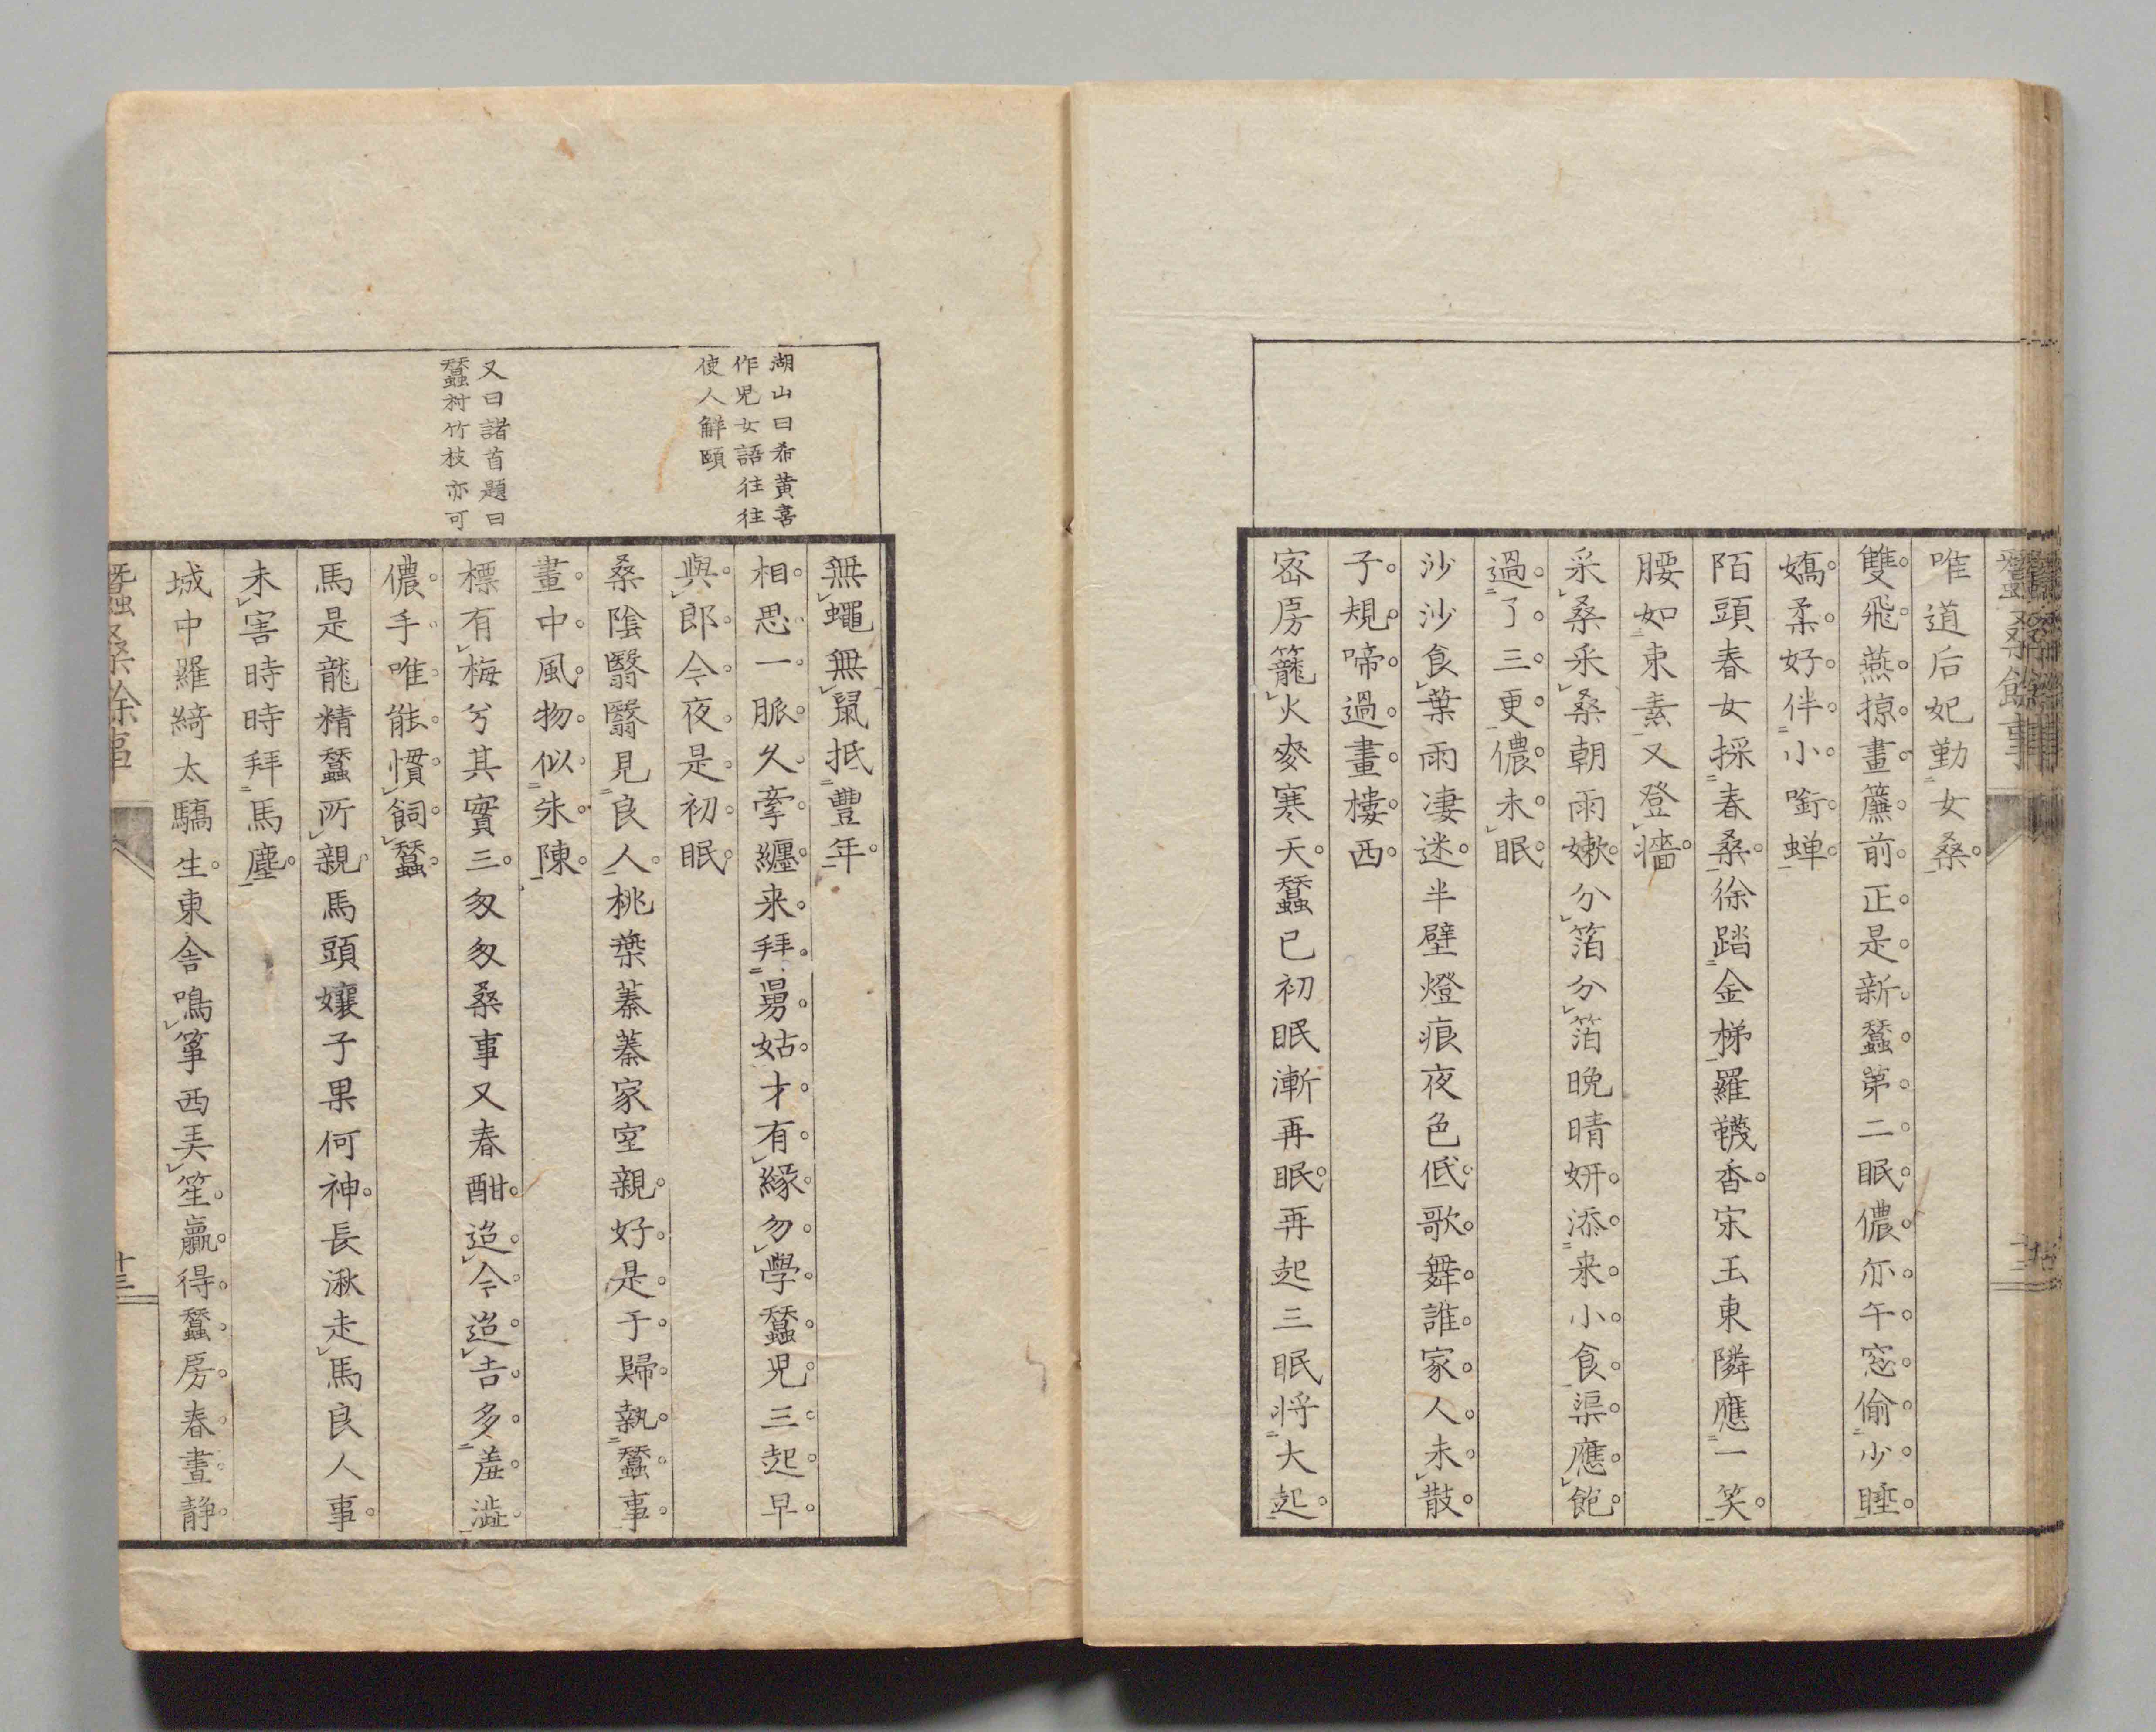 蠶桑餘事
唯道后妃勤女桑
雙飛燕掠畫簾前正是新蠶第二眠儂亦午窓偷少睡
嬌柔好伴小釵蟬
陌頭春女採春桑徐踏金梯羅韈香宋玉東隣應一笑
腰如束素又登牆
采桑采桑朝雨嫩分箔分箔晚晴妍添来小食渠應飽
過了三更儂未眠
沙沙食葉雨凄迷半壁燈痕夜色低歌舞誰家人未散
子規啼過畫樓西
密房籠火麥寒天蠶已初眠漸再眠再起三眠将大起
無蠅無鼠抵豐年
相思一脈久牽纏来拜舅姑才有緣勿學蠶児三起早
與郎今夜是初眠
桑陰翳翳見良人桃葉蓁蓁家室親好是于歸執蠶事
畫中風物似朱陳
標有梅兮其實三匆匆桑事又春酣迨今迨吉多羞澁
儂手唯能慣飼蠶
馬是龍精蠶所親馬頭孃子果何神長湫走馬良人事
未害時時拜馬塵
城中羅綺太驕生東舎鳴箏西弄笙贏得蠶房春晝静
蠶桑餘事
十三
湖山曰希黄喜
作児女語往往
使人解頤
又曰諸首題曰
蠶村竹枝亦可